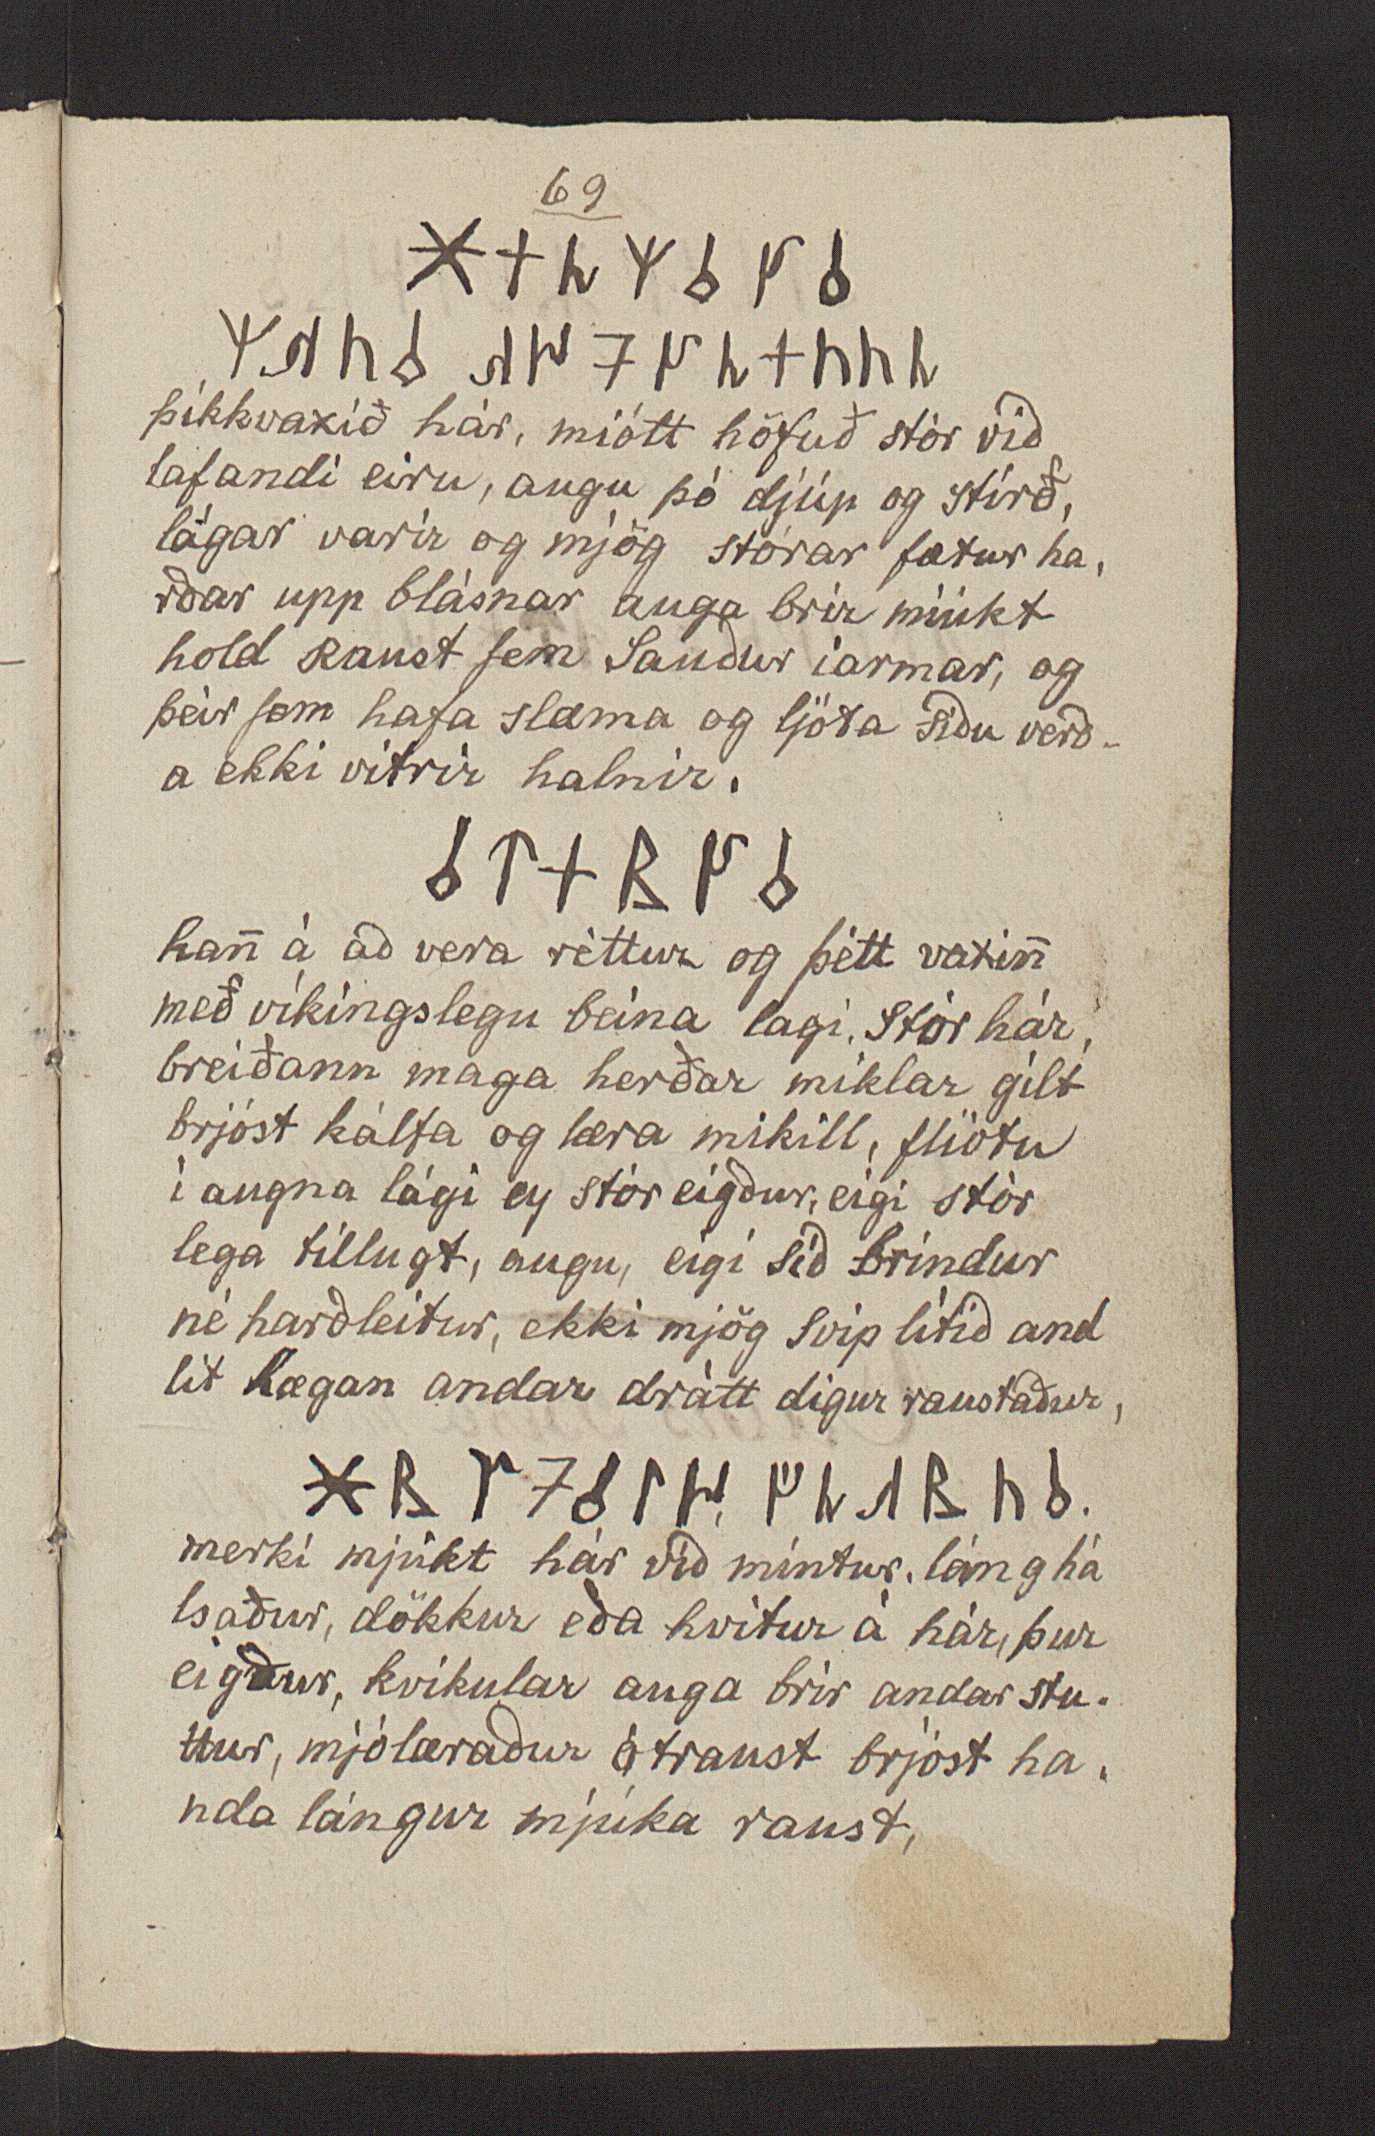 69
þikkvaxið hár, miótt höfuð stór við
lafandi eiru, augu þó djúp og stirð,
lágar varir og mjög stórar fætur ha,
rðar upp blásnar auga brír miúkt
hold Raust sem Sauður iarmar, og
þeir sem hafa slæma og ljóta siðu verð-
a ekki vitrir halnir.
han̄ á að vera réttur og þétt vaxin̄
með víkingslegu beina lagi. Stór hár,
breiðann maga herðar miklar gilt
brjóst kálfa og læra mikill, fliótu
í augna lági ey stór eigður, eigi stór
lega tillugt, augu, eigi sið brindur
né harðleitur, ekki mjög Svip litið and
lit hægan andar drátt digur raustaður,
merki mjúkt hár við mintur. láng há
lsaður, dökkur eða hvitur á hár, þur
eigður, kvikular auga brír andar stu.
ttur, mjólæraður ótraust brjóst ha,
nda lángur mjúka raust,